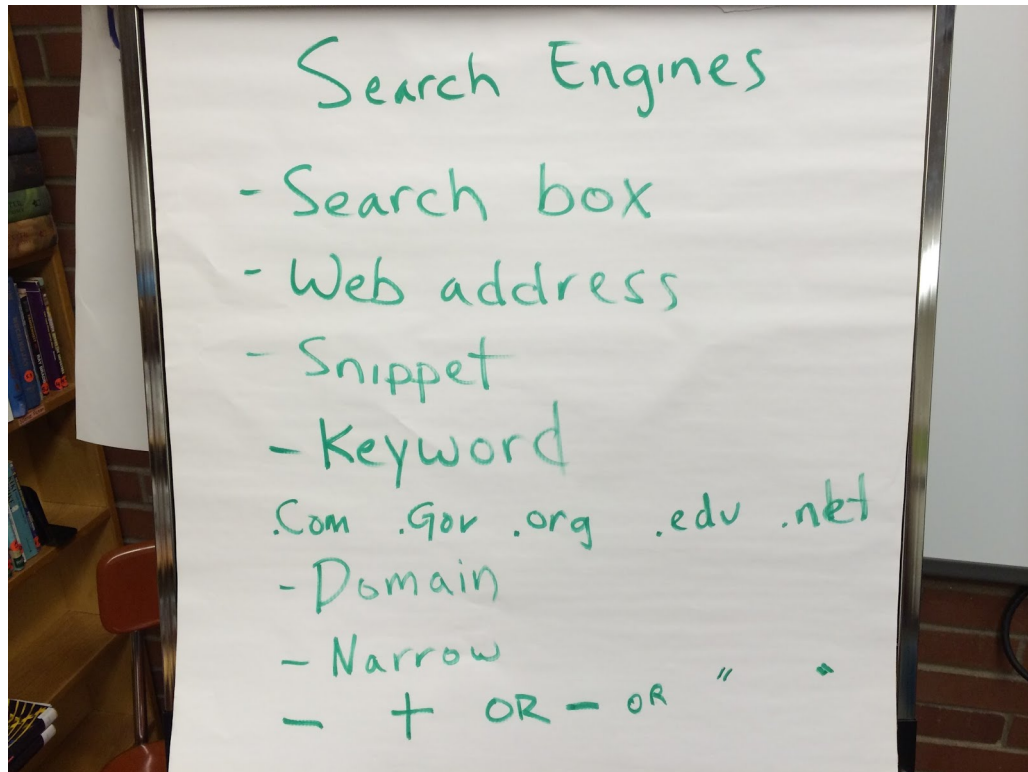 Search Engines
- Search box
- Web address
- Snippet
- Keyword
.Com .Gov .org .edu .net
- Domain
- Narrow
- + OR - OR " "